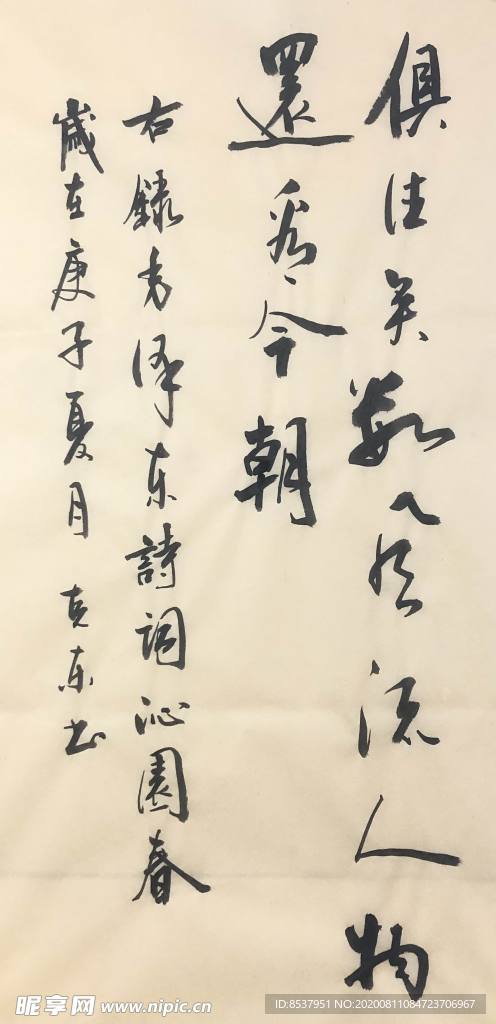 俱往矣數風流人物
還看今朝
右録毛澤東詩詞沁園春
歲在庚子夏月 克東书
昵享网 www.nipic.cn
ID:8537951 NO:20200811084723706967